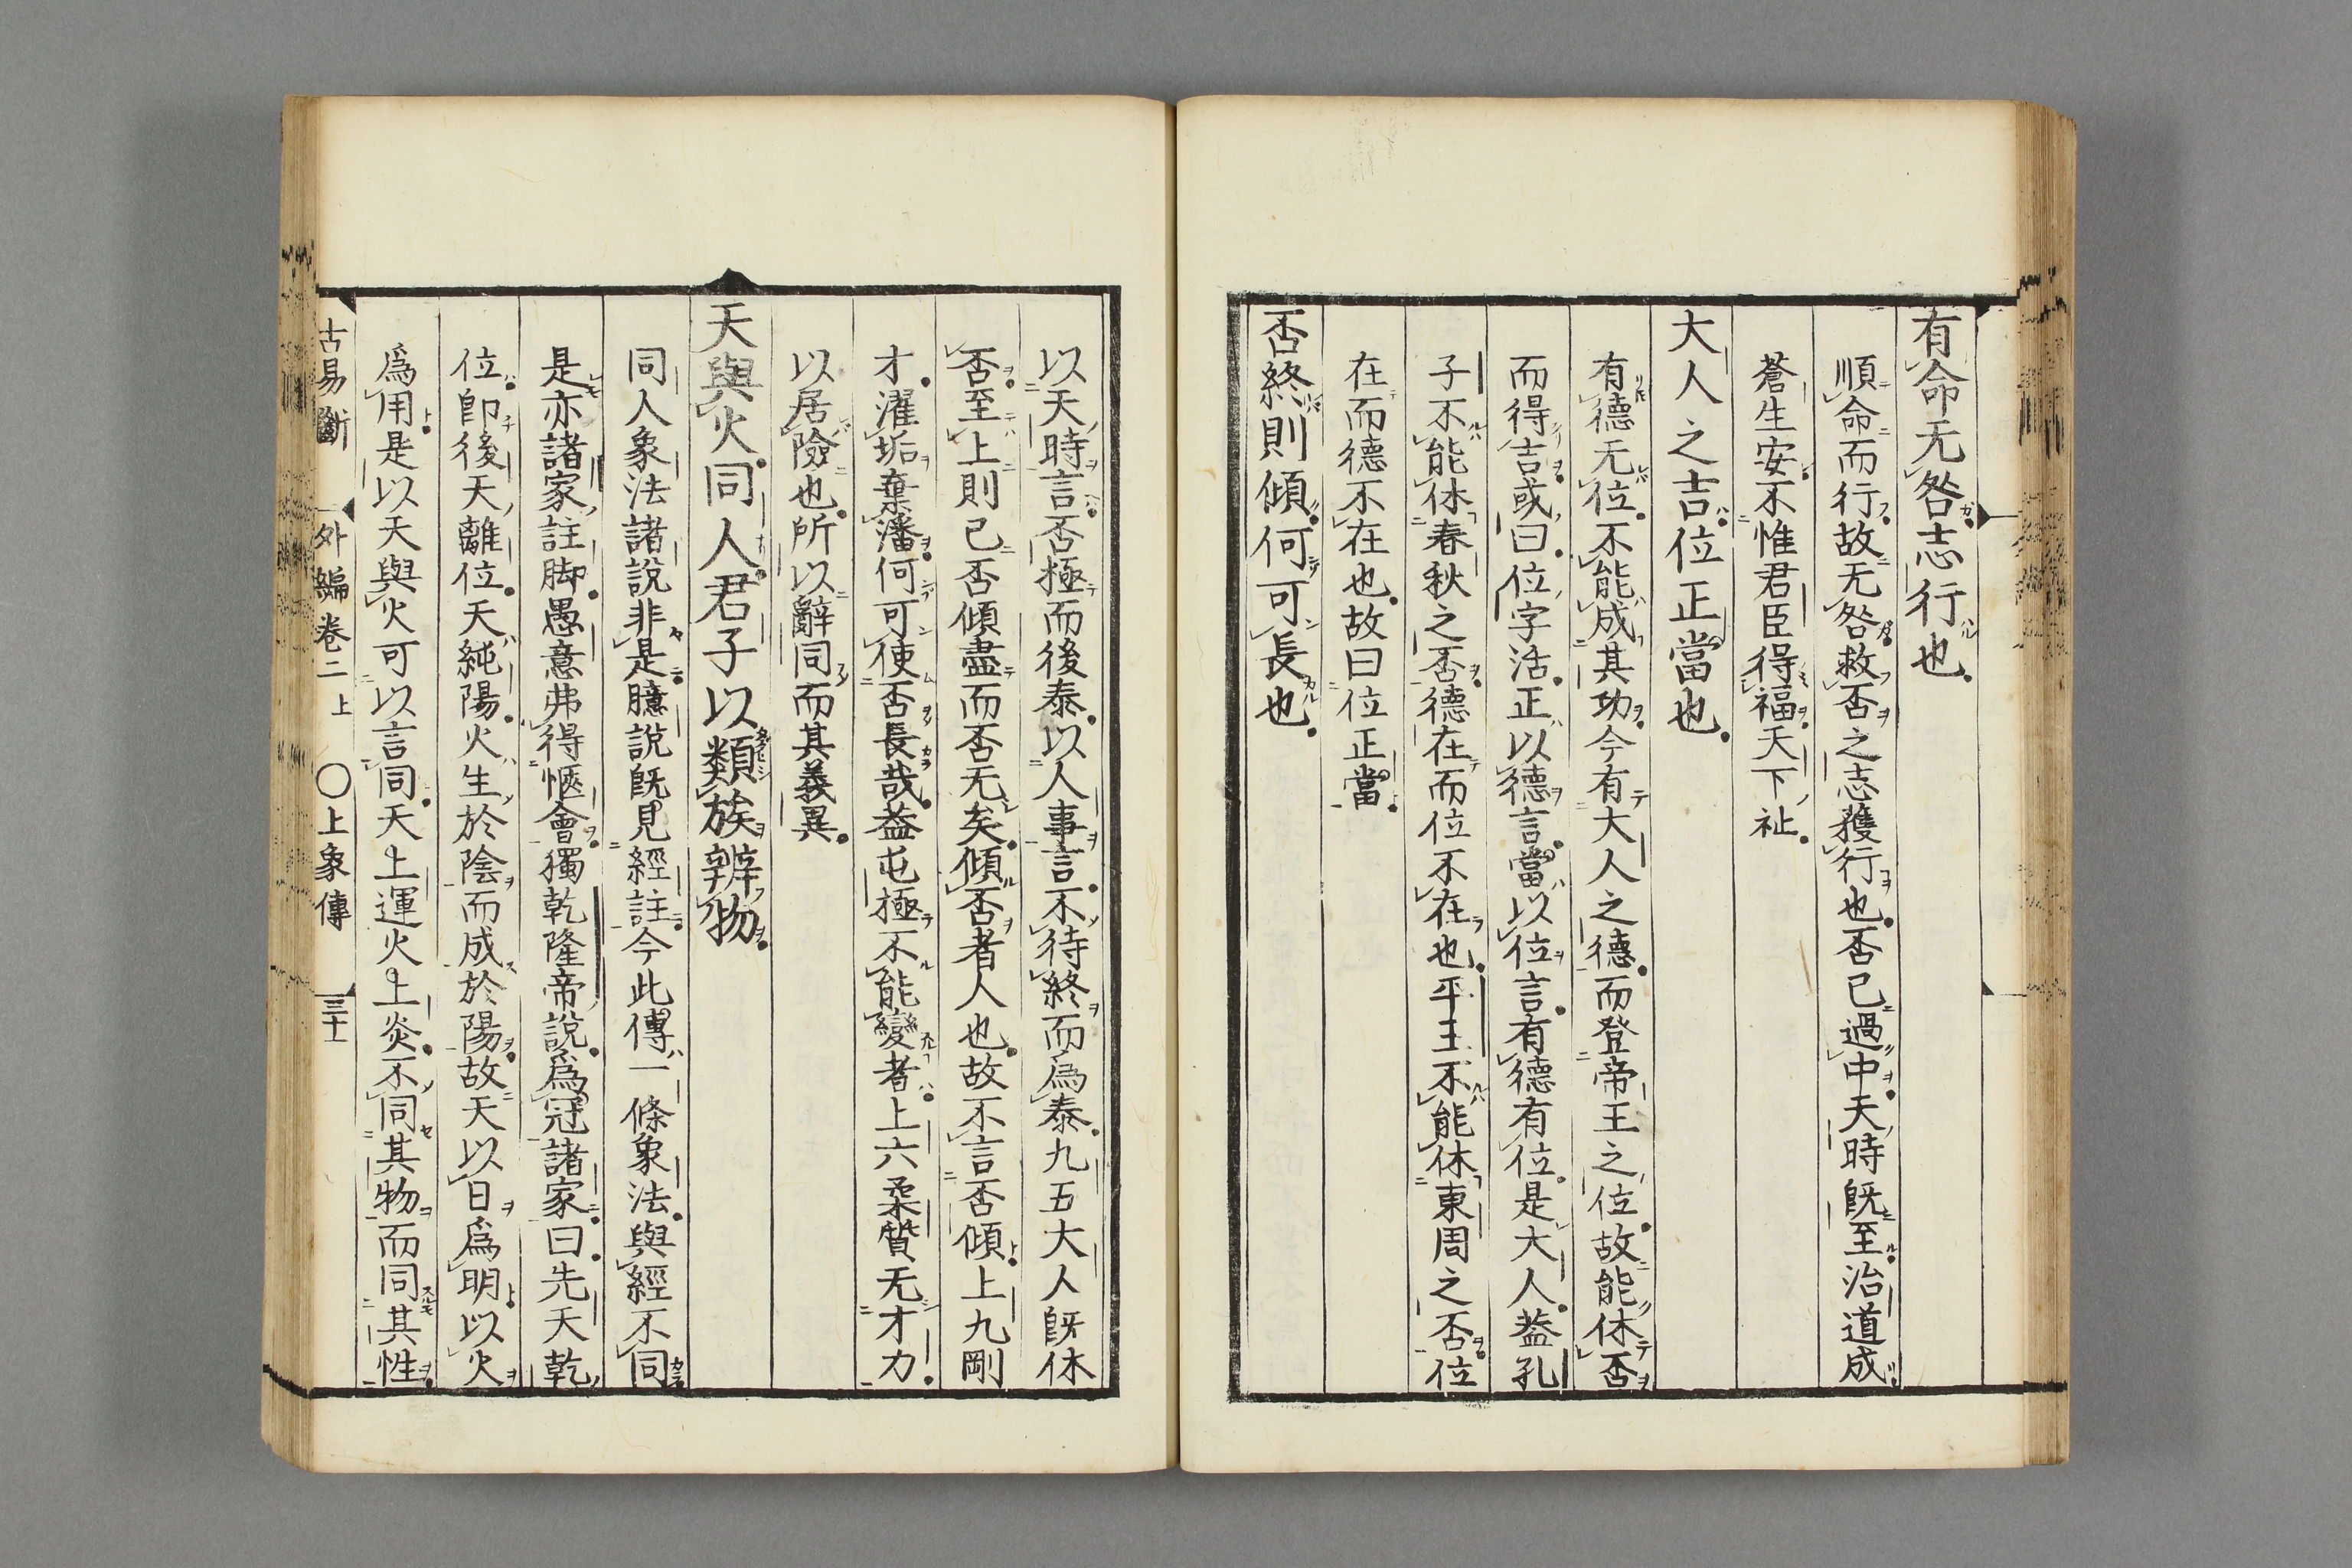 有命无咎志行也
順命而行故无咎救否之志獲行也否已過中天時既至治道成
蒼生安不惟君臣得福天下祉
大人之吉位正當也
有德无位不能成其功今有大人之德而登帝王之位故能休否
而得吉或曰位字活正以德言當以位言有德有位是大人葢孔
子不能休春秋之否德在而位不在也平王不能休東周之否位
在而德不在也故曰位正當
否終則傾何可長也
以天時言否極而後泰以人事言不待終而爲泰九五大人既休
否至上則已否傾盡而否无矣傾否者人也故不言否傾上九剛
才濯垢棄潘何可使否長哉葢屯極不能變者上六柔質无才力
以居險也所以辭同而其義異
天與火同人君子以類族辨物
同人象法諸說非是臆說既見經註今此傳一條象法與經不同
是亦諸家註脚愚意弗得愜會獨乾隆帝說爲冠諸家曰先天乾
位卽後天離位天純陽火生於陰而成於陽故天以日爲明以火
爲用是以天與火可以言同天上運火上炎不同其物而同其性
古易斷 外編卷二上 〇上象傳 三十